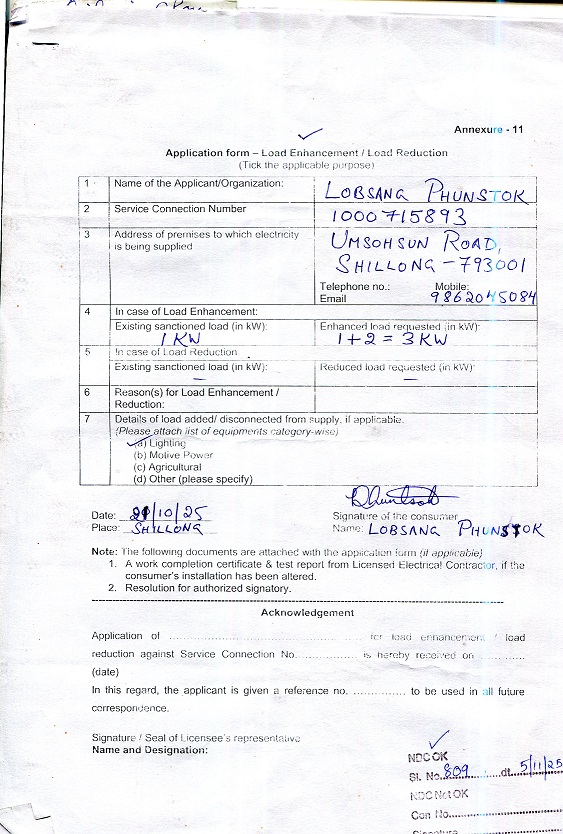 Annexure - 11
Application form – Load Enhancement / Load Reduction
(Tick the applicable purpose)
1 Name of the Applicant/Organization: LOBSANG PHUNSTOK
2 Service Connection Number 1000715893
3 Address of premises to which electricity is being supplied
UMSOHSUN ROAD,
SHILLONG - 793001
Telephone no.: Mobile:
Email 9862045084
4 In case of Load Enhancement:
Existing sanctioned load (in kW): Enhanced load requested (in kW):
1 KW 1+2 = 3 KW
5 In case of Load Reduction
Existing sanctioned load (in kW): Reduced load requested (in kW):
– –
6 Reason(s) for Load Enhancement /
Reduction:
7 Details of load added/ disconnected from supply, if applicable.
(Please attach list of equipments category-wise)
(a) Lighting
(b) Motive Power
(c) Agricultural
(d) Other (please specify)
Date: /10/25 Signature of the consumer
Place: SHILLONG Name: LOBSANG PHUNSTOK
Note: The following documents are attached with the application form (if applicable)
1. A work completion certificate & test report from Licensed Electrical Contractor, if the
consumer's installation has been altered.
2. Resolution for authorized signatory.
Acknowledgement
Application of ........................ for load enhancement / load
reduction against Service Connection No. ................ is hereby received on ............
(date)
In this regard, the applicant is given a reference no. .............. to be used in all future
correspondence.
Signature / Seal of Licensee's representative
Name and Designation:
NDC OK
Sl. No. 809 dt. 5/11/25
NDC Not OK
Con No.
Signature